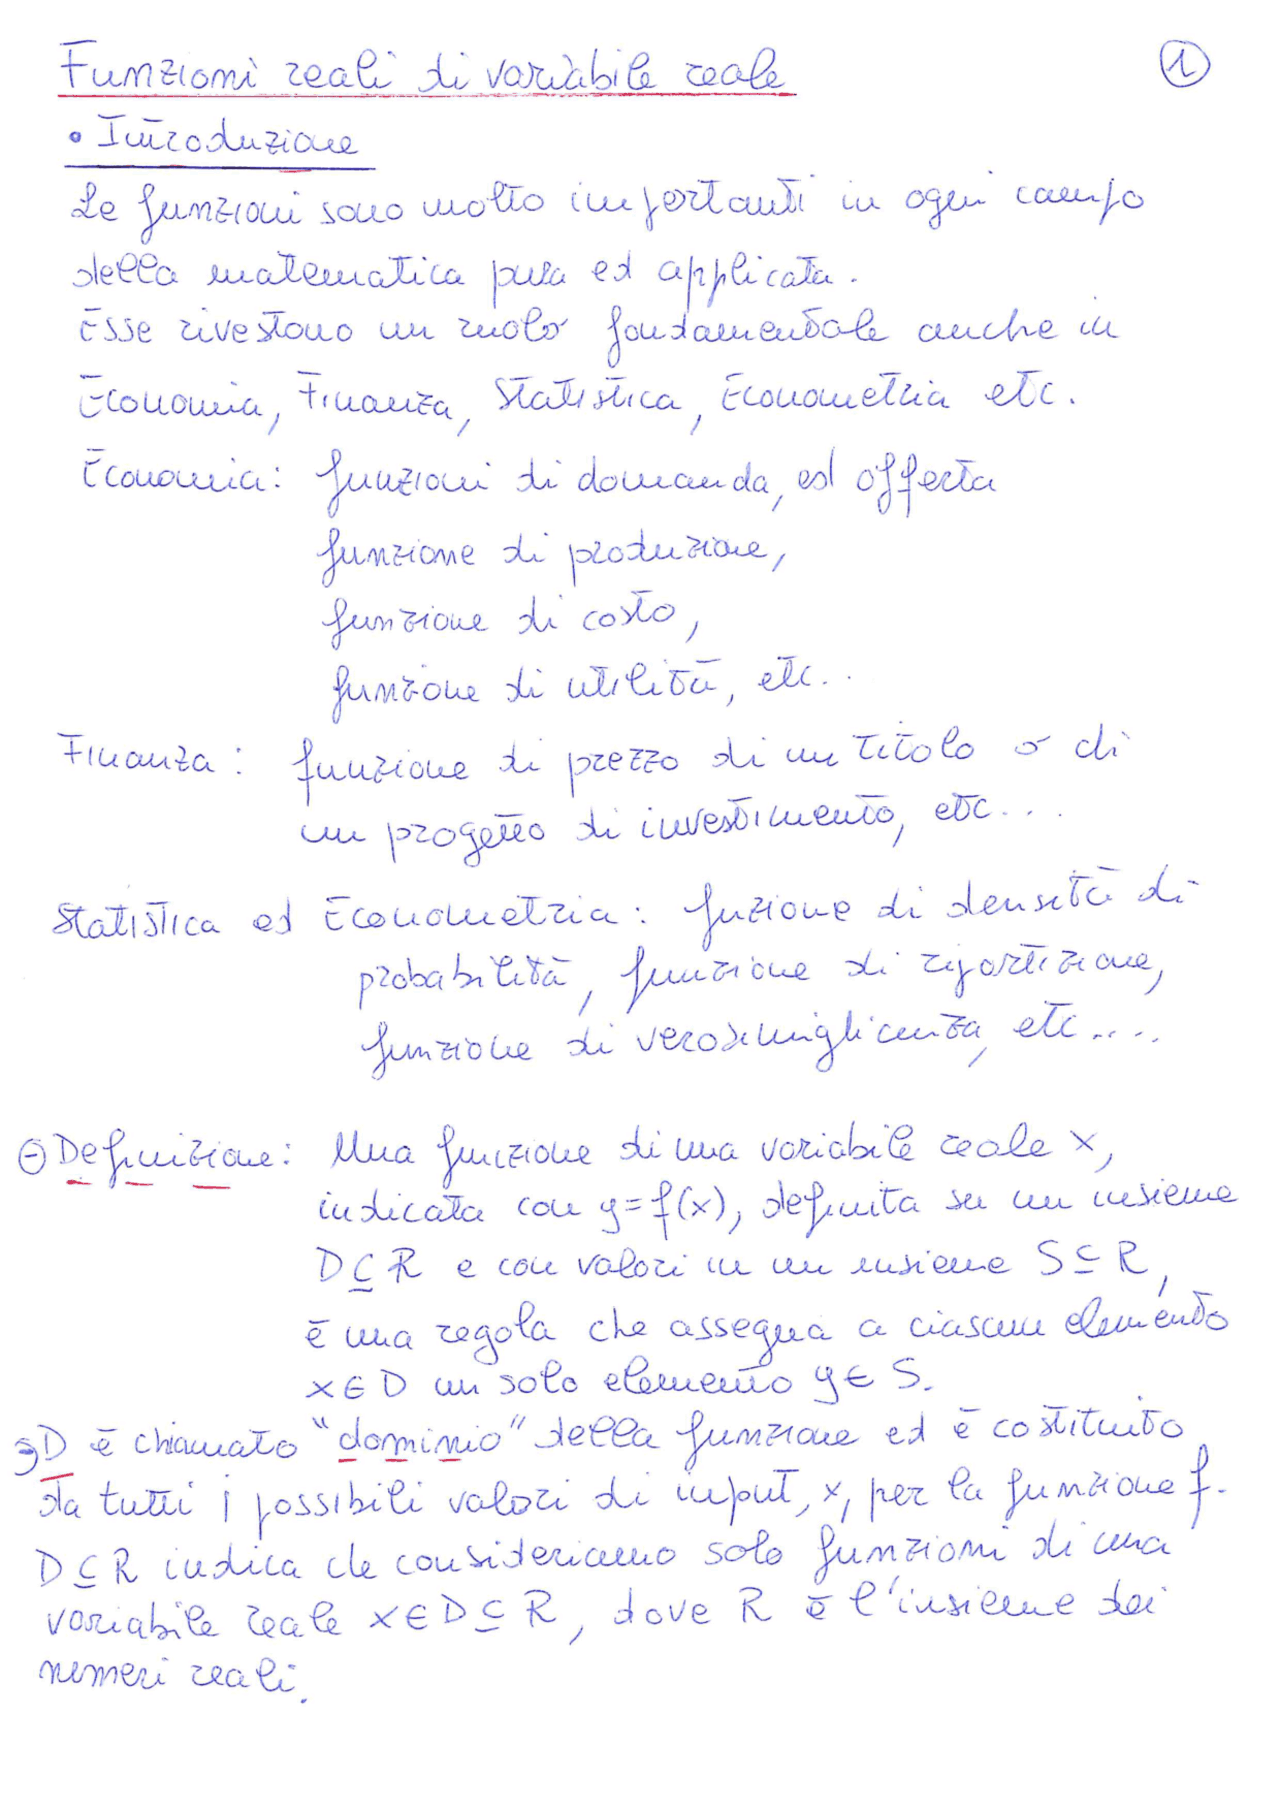 Funzioni reali di variabile reale
1
• Introduzione
Le funzioni sono molto importanti in ogni campo
della matematica pura ed applicata.
Esse rivestono un ruolo fondamentale anche in
Economia, Finanza, Statistica, Econometria etc.
Economia: funzioni di domanda, ed offerta
funzione di produzione,
funzione di costo,
funzione di utilità, etc..
Finanza: funzione di prezzo di un titolo o di
un progetto di investimento, etc...
Statistica ed Econometria: fuzione di densità di
probabilità, funzione di ripartizione,
funzione di verosimiglianza, etc....
⊖ Definizione: Una funzione di una variabile reale x,
indicata con y=f(x), definita su un insieme
D⊆R e con valori in un insieme S⊆R,
è una regola che assegna a ciascun elemento
x∈D un solo elemento y∈S.
D è chiamato "dominio" della funzione ed è costituito
da tutti i possibili valori di input, x, per la funzione f.
D⊆R indica che consideriamo solo funzioni di una
variabile reale x∈D⊆R, dove R è l'insieme dei
numeri reali.